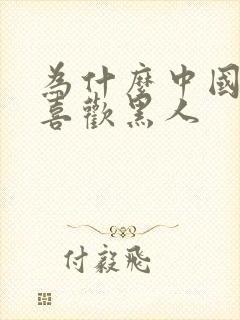 為什麼中國
喜歡黑人
付毅飛